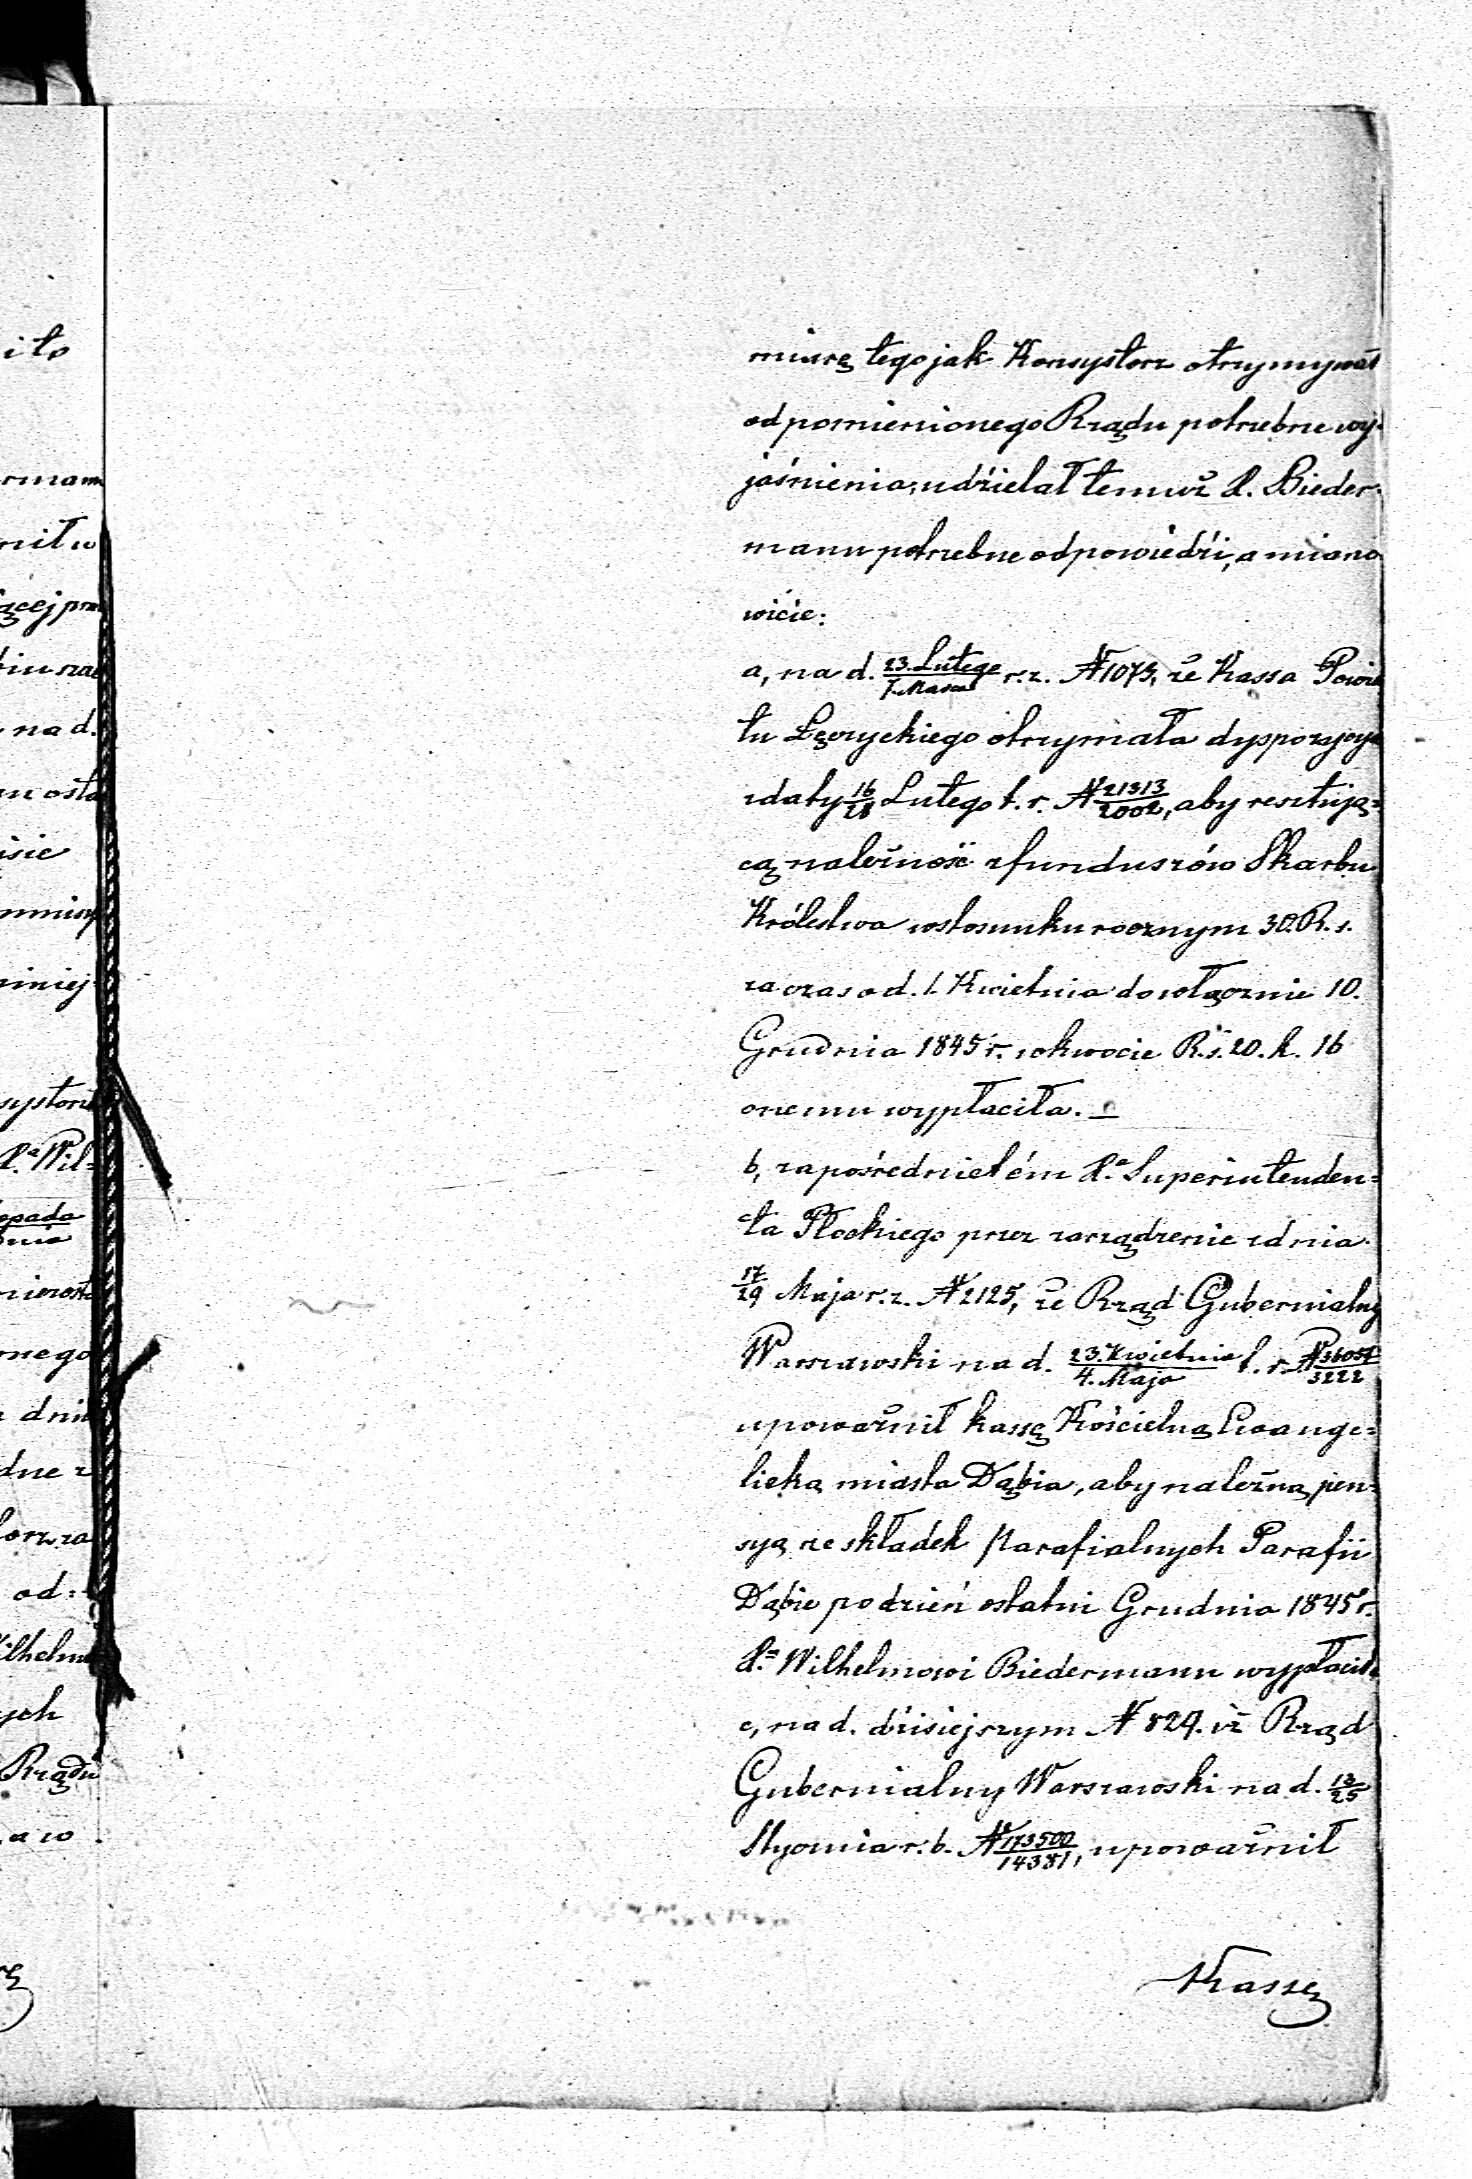 ito
rmann
niłu
ącej prze
biu zaś
nad.
m osta
isie
mmisy
niniej
systorz
P.ª Wil=
opada
nia
nego
dniu
dne z
torz za
od=
ilhelm
ych
Rządu
a w
miarę tego jak Konsystorz otrzymywał
od pomienionego Rządu potrzebne wy-
jaśnienia, udzielał temuż P. Bieder-
mann potrzebne odpowiedzi, a miano
wicie:
a, na d. 23. Lutego / 7. Marca r. z. N 1073, że Kassa Powia
tu Łęczyckiego otrzymała dyspozycyą
z daty 16/28 Lutego t. r. N 21313/2002, aby resztują=
cą należność z funduszów Skarbu
Królestwa w stosunku rocznym 30. R. s.
za czas od. 1. Kwietnia do włącznie 10.
Grudnia 1845 r. w kwocie R. s. 20. k. 16
onemu wypłaciła. –
b, za pośrednictwém P.ª Superintenden=
ta Płockiego przez zarządzenie z dnia
17/29 Maja r. z. N 2125, że Rząd Gubernialny
Warszawski na d. 23. Kwietnia / 4. Maja t. r. N 36057/3222
upoważnił kassę Kościelną Ewange=
licką miasta Dąbia, aby należną pen=
syą ze składek Parafialnych Parafii
Dąbie po dzień ostatni Grudnia 1845 r.
P.ª Wilhelmowi Biedermann wypłaciła
c, na d. dzisiejszym N 829. iż Rząd
Gubernialny Warszawski na d. 13/25
Stycznia r. b. N 173500/14381, upoważnił
Kassę